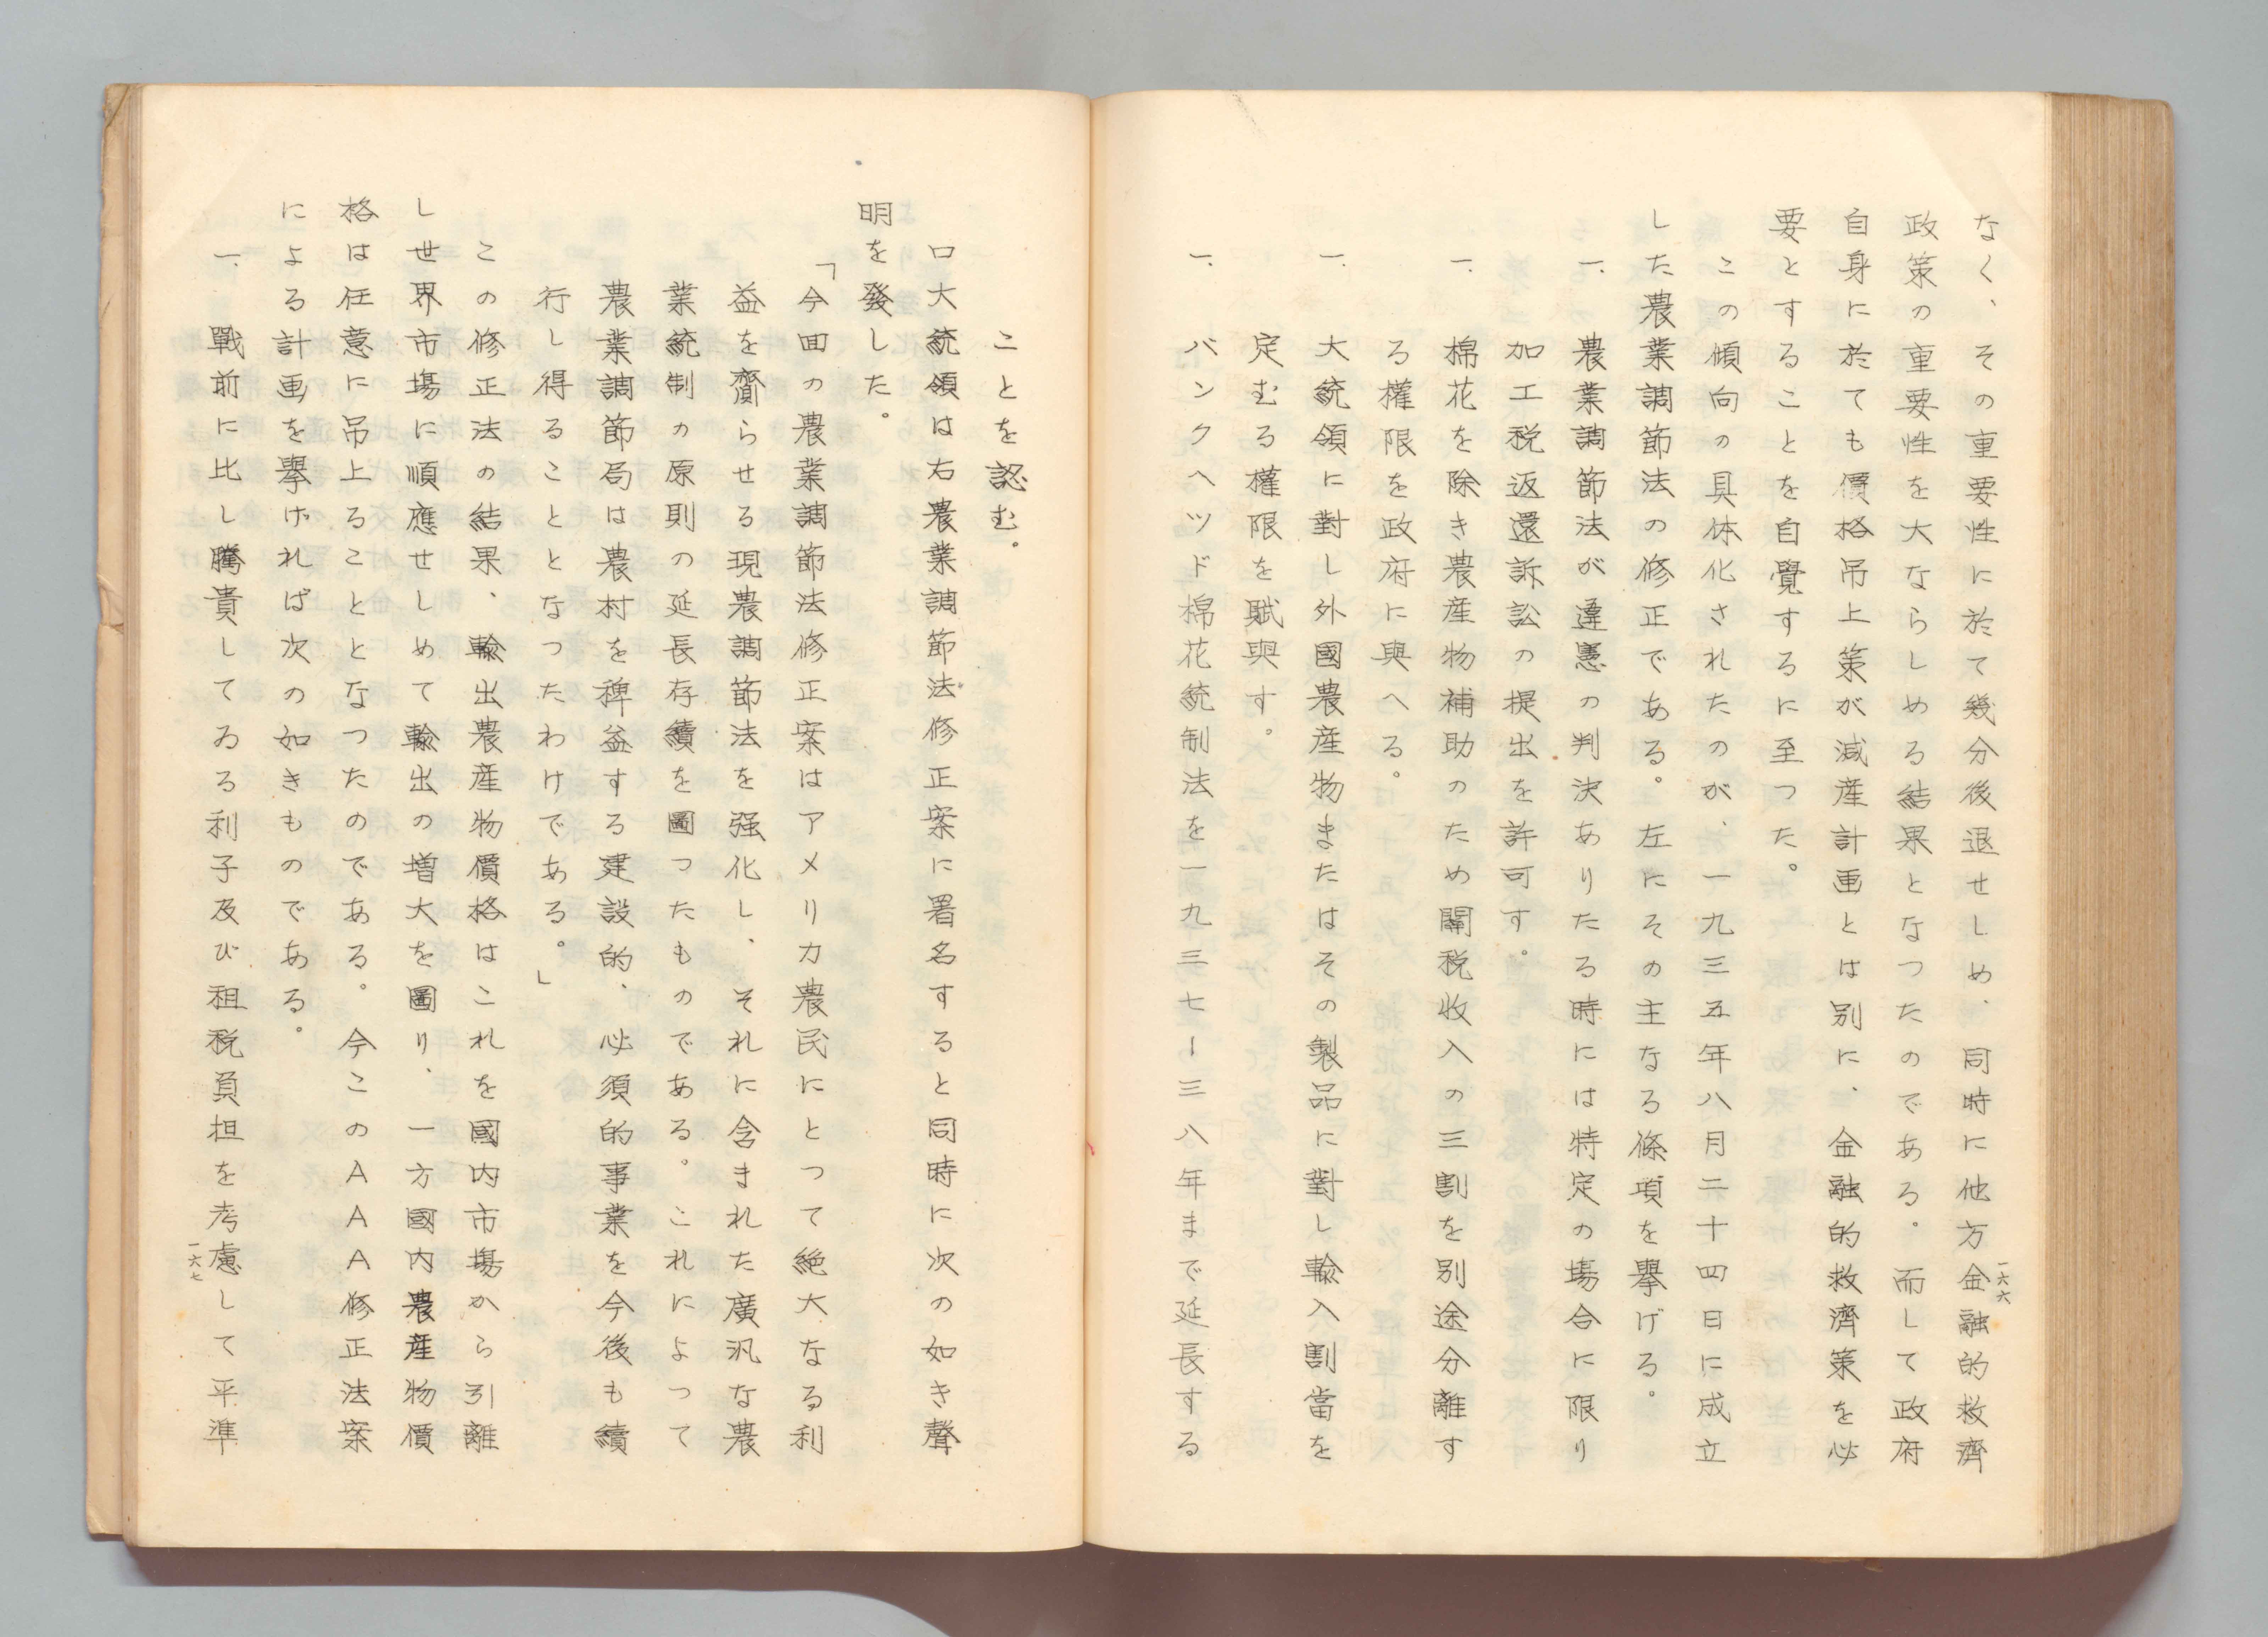 なく、その重要性に於て幾分後退せしめ、同時に他方金融的救濟
政策の重要性を大ならしめる結果となつたのである。而して政府
自身に於ても價格吊上策が減産計画とは別に、金融的救濟策を必
要とすることを自覺するに至つた。
この傾向の具体化されたのが、一九三五年八月二十四日に成立
した農業調節法の修正である。左にその主なる條項を擧げる。
一、農業調節法が違憲の判決ありたる時には特定の場合に限り
加工税返還訴訟の提出を許可す。
一、棉花を除き農産物補助のため關税收入の三割を別途分離す
る權限を政府に與へる。
一、大統領に對し外國農産物またはその製品に對し輸入割當を
定むる權限を賦與す。
一、バンクヘツド棉花統制法を一九三七ー三八年まで延長する
一六六
ことを認む。
ロ大統領は右農業調節法修正案に署名すると同時に次の如き聲
明を發した。
「今回の農業調節法修正案はアメリカ農民にとつて絶大なる利
益を齎らせる現農調節法を强化し、それに含まれた廣汎な農
業統制の原則の延長存續を圖つたものである。これによつて
農業調節局は農村を裨益する建設的、必須的事業を今後も續
行し得ることとなつたわけである。」
この修正法の結果、輸出農産物價格はこれを國内市場から引離
し世界市場に順應せしめて輸出の増大を圖り、一方國内農産物價
格は任意に吊上ることとなつたのである。今このAAA修正法案
による計画を擧げれば次の如きものである。
一、戰前に比し騰貴してゐる利子及び租税負担を考慮して平準
一六七